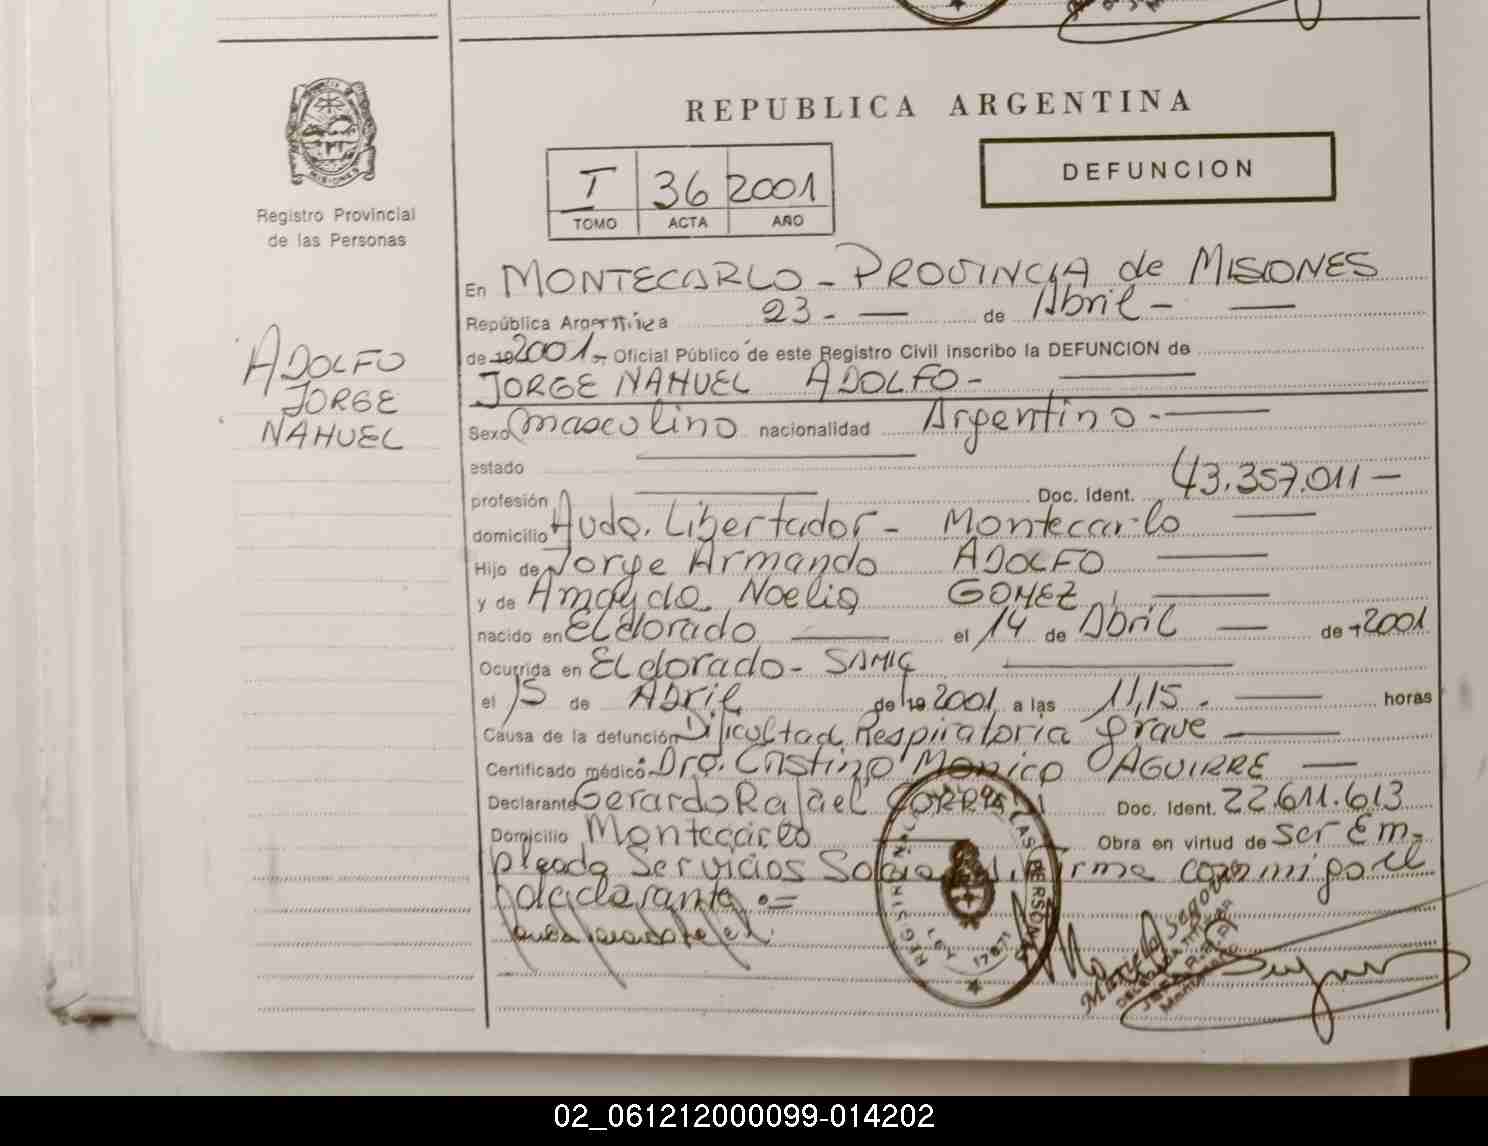 REPUBLICA ARGENTINA
DEFUNCION
I 36 2001
TOMO ACTA AÑO
Registro Provincial
de las Personas
ADOLFO
JORGE
NAHUEL
En MONTECARLO - PROVINCIA de MISIONES
República Argentina 23 - — de Abril - —
de 19 2001 - Oficial Público de este Registro Civil inscribo la DEFUNCION de
JORGE NAHUEL ADOLFO - —
Sexo masculino nacionalidad Argentino - —
estado —
profesión — Doc. Ident. 43.357.011 —
domicilio Avda. Libertador - Montecarlo —
Hijo de Jorge Armando ADOLFO —
y de Amayda Noelia GOMEZ —
nacido en Eldorado — el 14 de Abril — de 2001
Ocurrida en Eldorado - SAMIC —
el 15 de Abril de 19 2001 a las 11,15 . — horas
Causa de la defunción Dificultad Respiratoria grave —
Certificado médico Dra. Cristina Monica AGUIRRE —
Declarante Gerardo Rafael CORREA Doc. Ident. 22.611.613
Domicilio Montecarlo — Obra en virtud de ser Em-
pleado Servicios Sociales. Firma conmigo el
declarante . =
REGISTRO NACIONAL DE LAS PERSONAS
LEY 17671
DELEGADA TITULAR
02_061212000099-014202